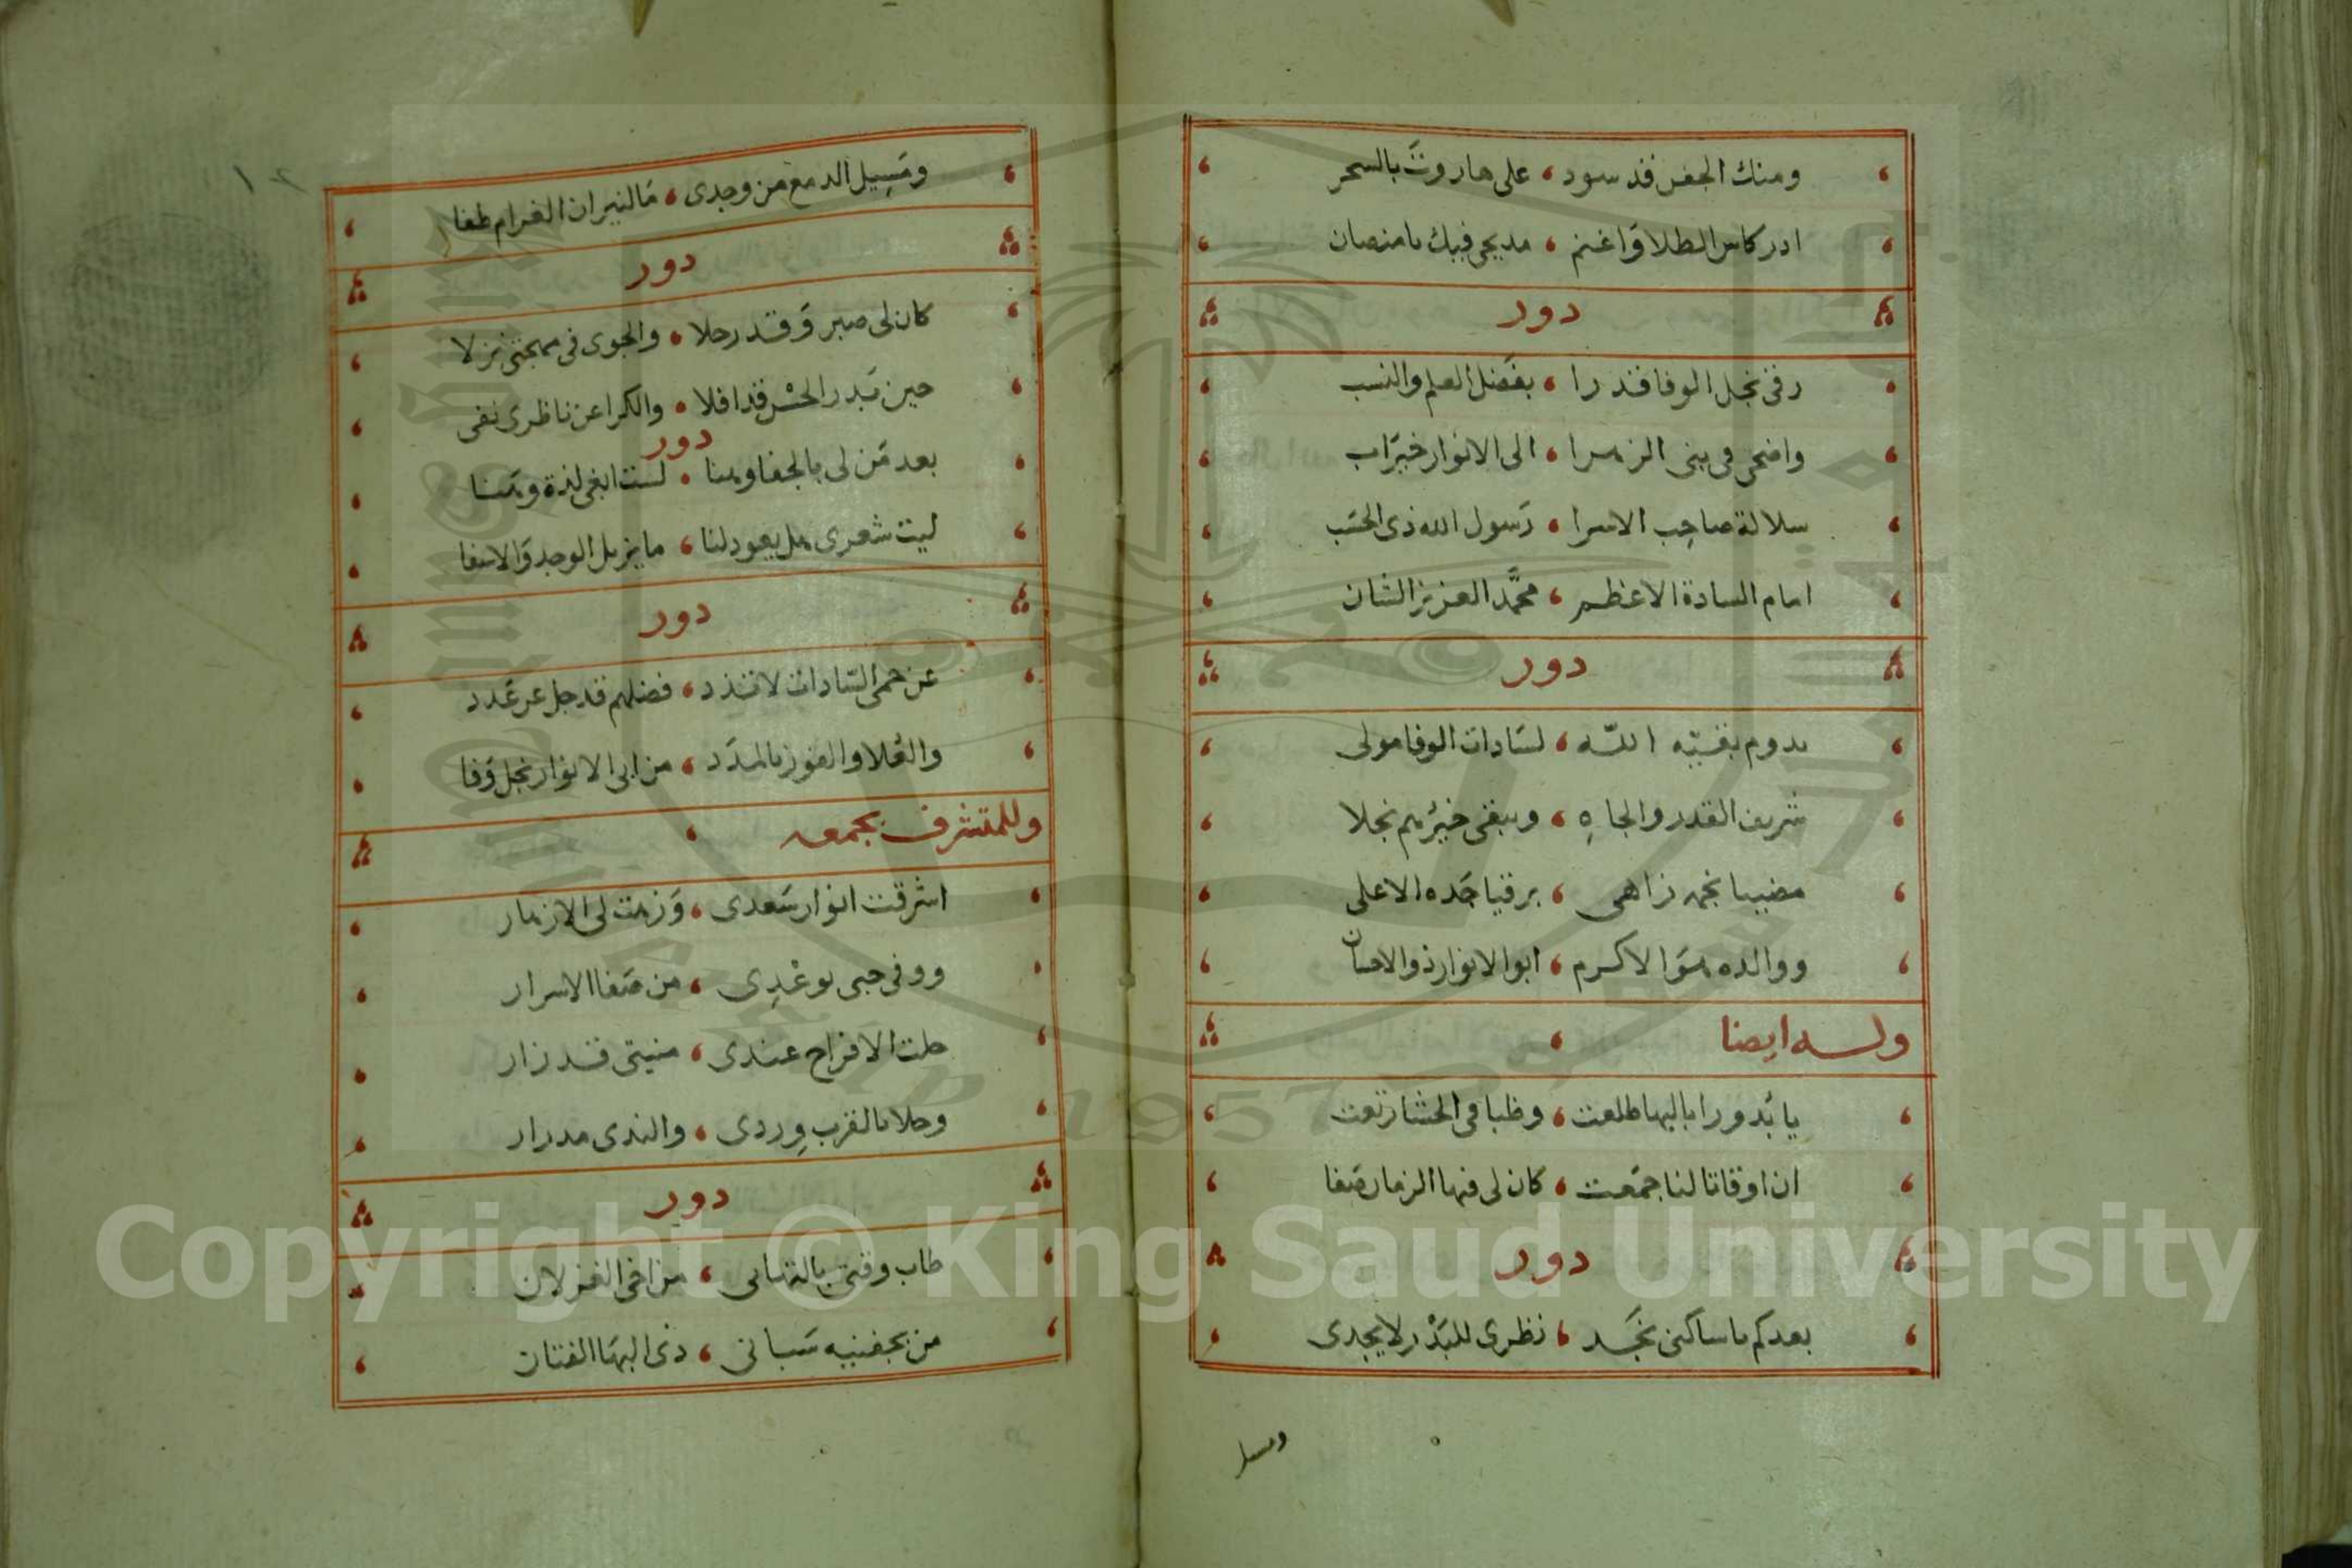 ومنك الجفن قد سود ، على هاروت بالسحر
ادر كاس الطلا واغنم ، مديحى فيك يامنصان
دور
رقى نجل الوفا قدرا ، بفضل العلم والنسب
واضحى فى بنى الزهرا ، الى الانوار خير اب
سلالة صاحب الاسرا ، رسول الله ذى الحسب
امام السادة الاعظم ، محمَّد العزيز الشان
دور
يدوم بقيّه اللّه ، لسادات الوفا مولى
شريف القدر والجاهِ ، ويبقى خيرهم نجلا
مضييا نجمه زاهى ، برقيا جده الاعلى
ووالده هو الاكرم ، ابو الانوار ذو الاحسان
وله ايضا ،
يا بدورا بالبها طلعت ، وظبا فى الحشا رتعت
ان اوقاتا لنا جمعت ، كان لى فيها الزمان صفا
دور
بعدكم يا ساكنى نجد ، نظرى للبدر لا يجدى
ومسيل
١٢
ومسيل الدمع من وجدى ، ما لنيران الغرام طفا
دور
كان لى صبر وقد رحلا ، والجوى فى مهجتى نزلا
حين بدر الحسن قد افلا ، والكرا عن ناظرى نفى
دور
بعد من لى بالجفا وهنا ، لست ابغى لذة وهنا
ليت شعرى هل يعود لنا ، ما يزيل الوجد والاسفا
دور
عن حمى السّادات لا تذد ، فضلهم قد جل عن عدد
والعُلا والفوز بالمدد ، من ابى الانوار نجل وفا
وللمتشرف بجمعه ،
اشرقت انوار سعدى ، وزهت لى الازهار
ووفى حبى بوعدِى ، من صفا الاسرار
حلت الافراح عندى ، منيتى قد زار
وحلا بالقرب وِردى ، والندى مدرار
دور
طاب وقتى بالتهانى ، من اخى الغزلان
من بجفنيه سبانى ، ذى البها الفتان
Copyright © King Saud University
1957